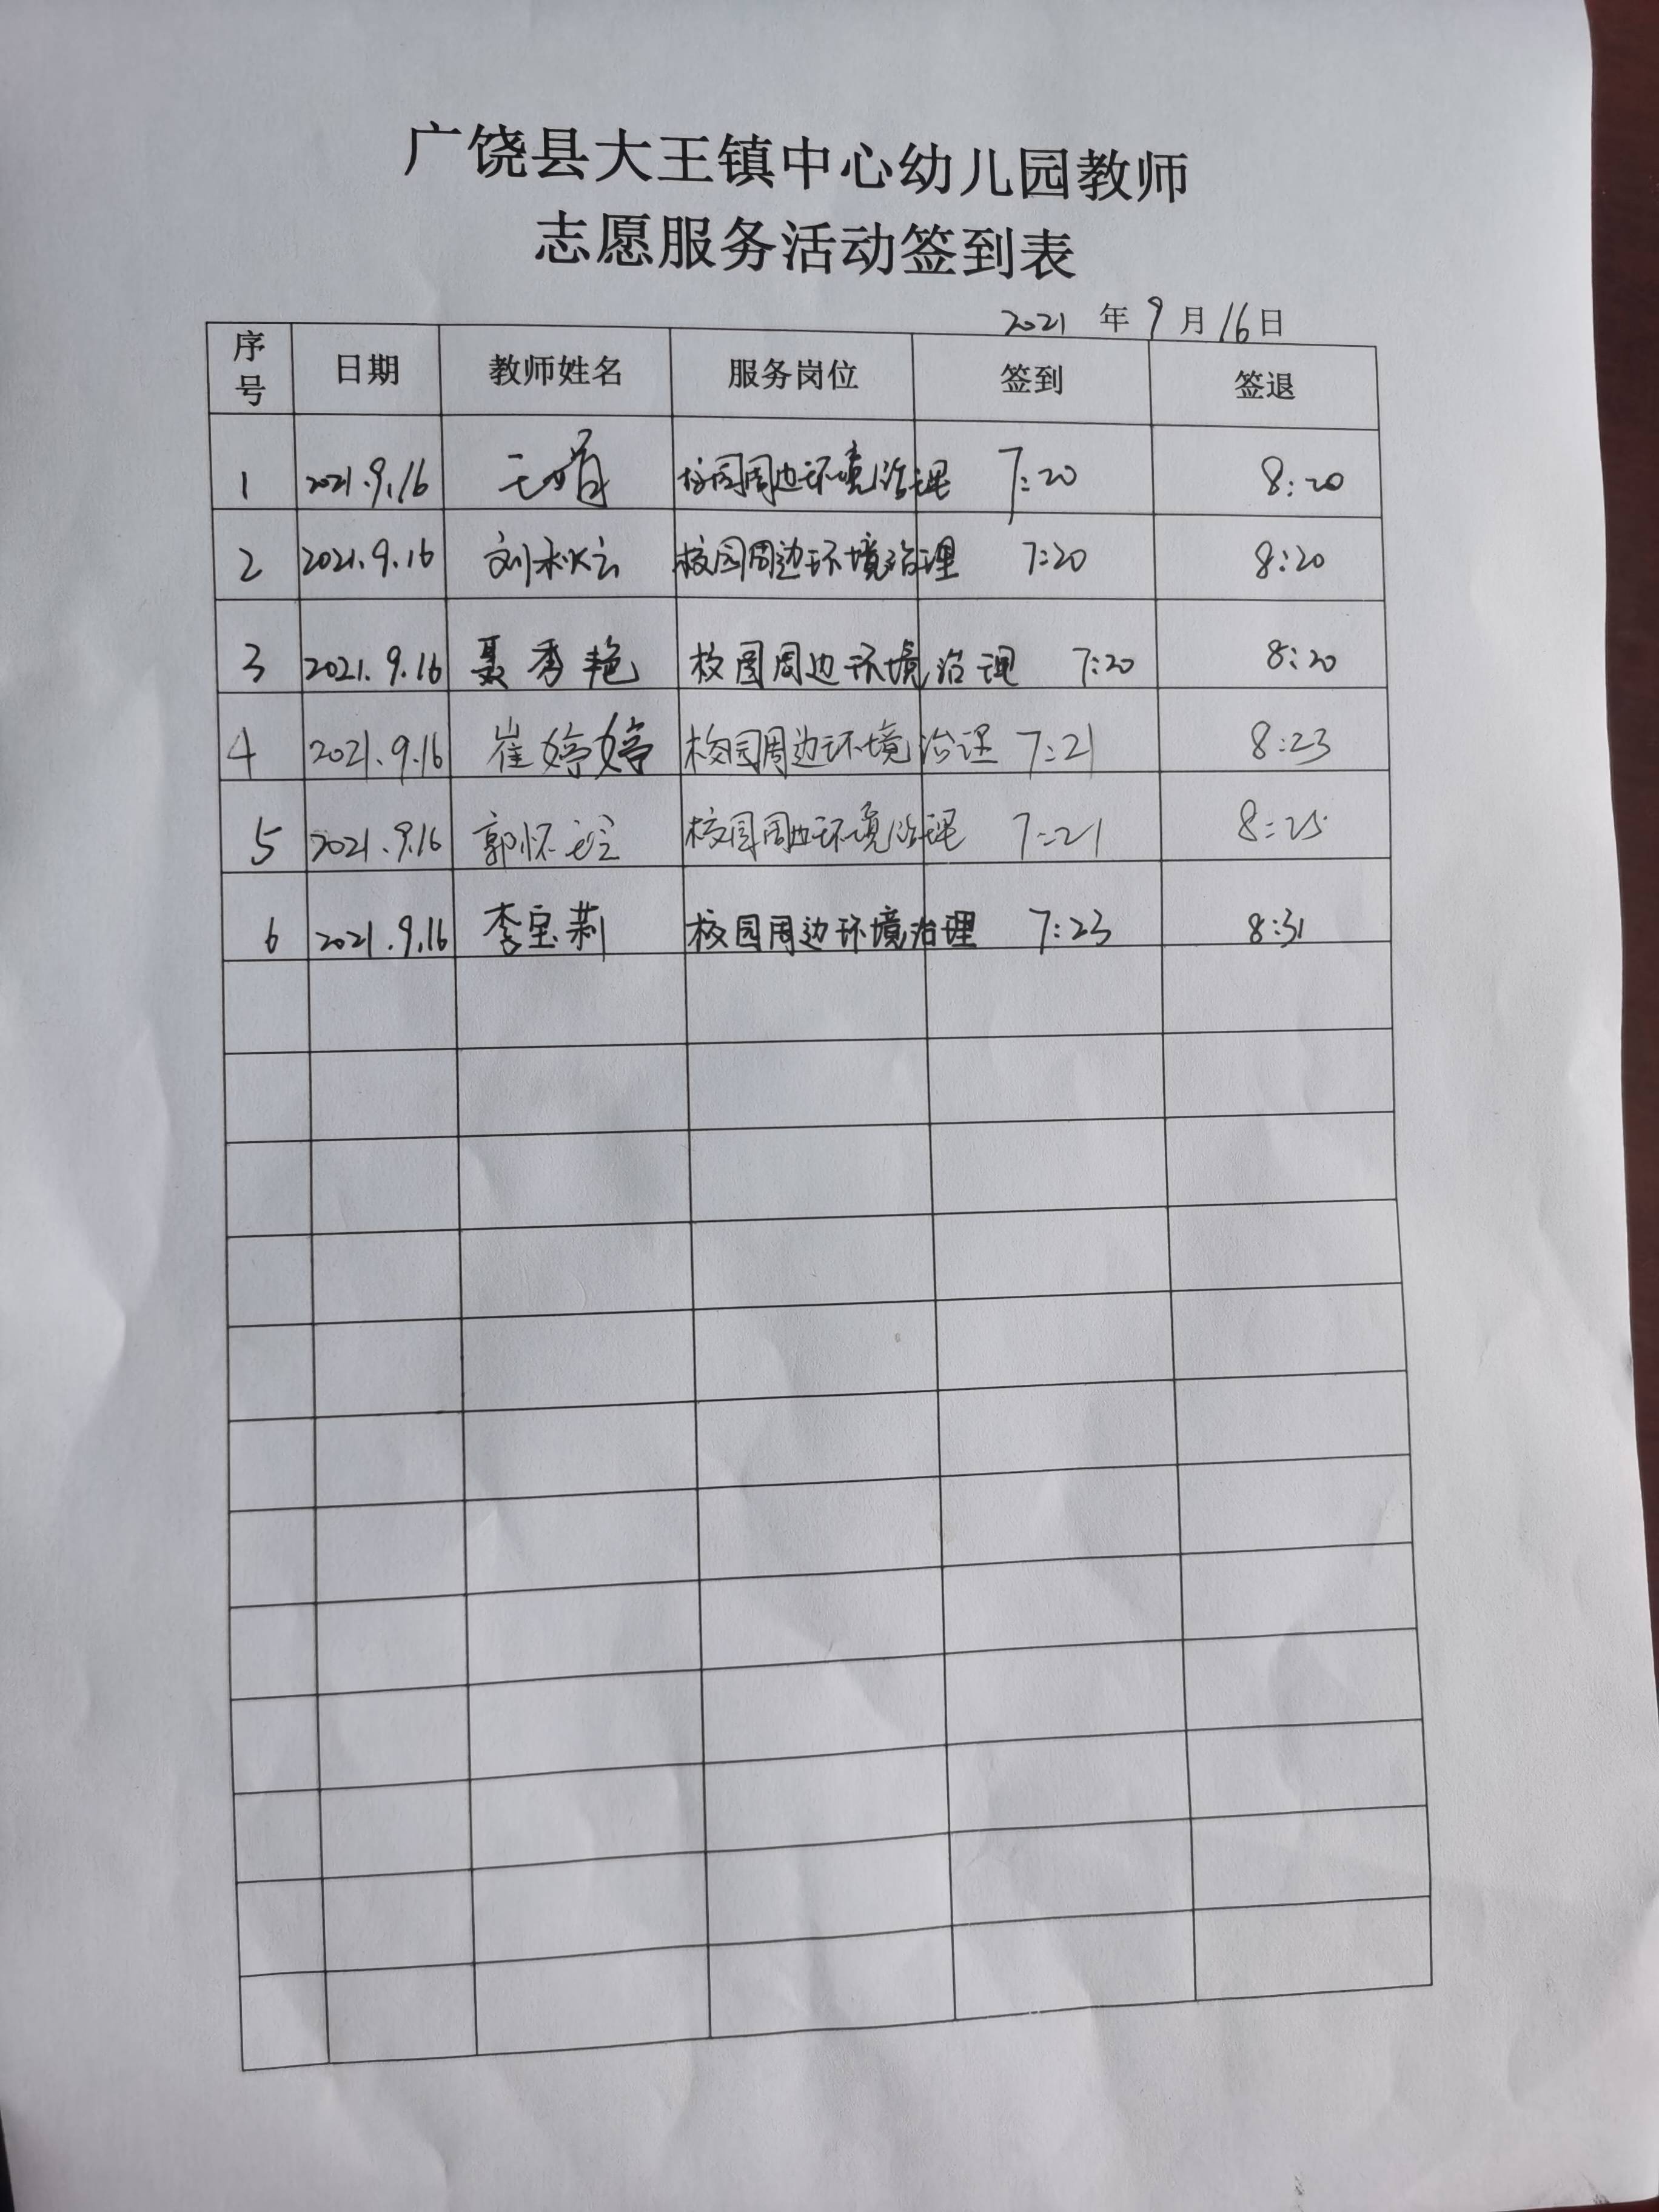 广饶县大王镇中心幼儿园教师
志愿服务活动签到表
2021 年 9 月 16 日
序号 日期 教师姓名 服务岗位 签到 签退
1 2021.9.16 校园周边环境治理 7:20 8:20
2 2021.9.16 刘秋云 校园周边环境治理 7:20 8:20
3 2021.9.16 聂秀艳 校园周边环境治理 7:20 8:20
4 2021.9.16 崔婷婷 校园周边环境治理 7:21 8:23
5 2021.9.16 郭怀 校园周边环境治理 7:21 8:25
6 2021.9.16 李宝莉 校园周边环境治理 7:23 8:31